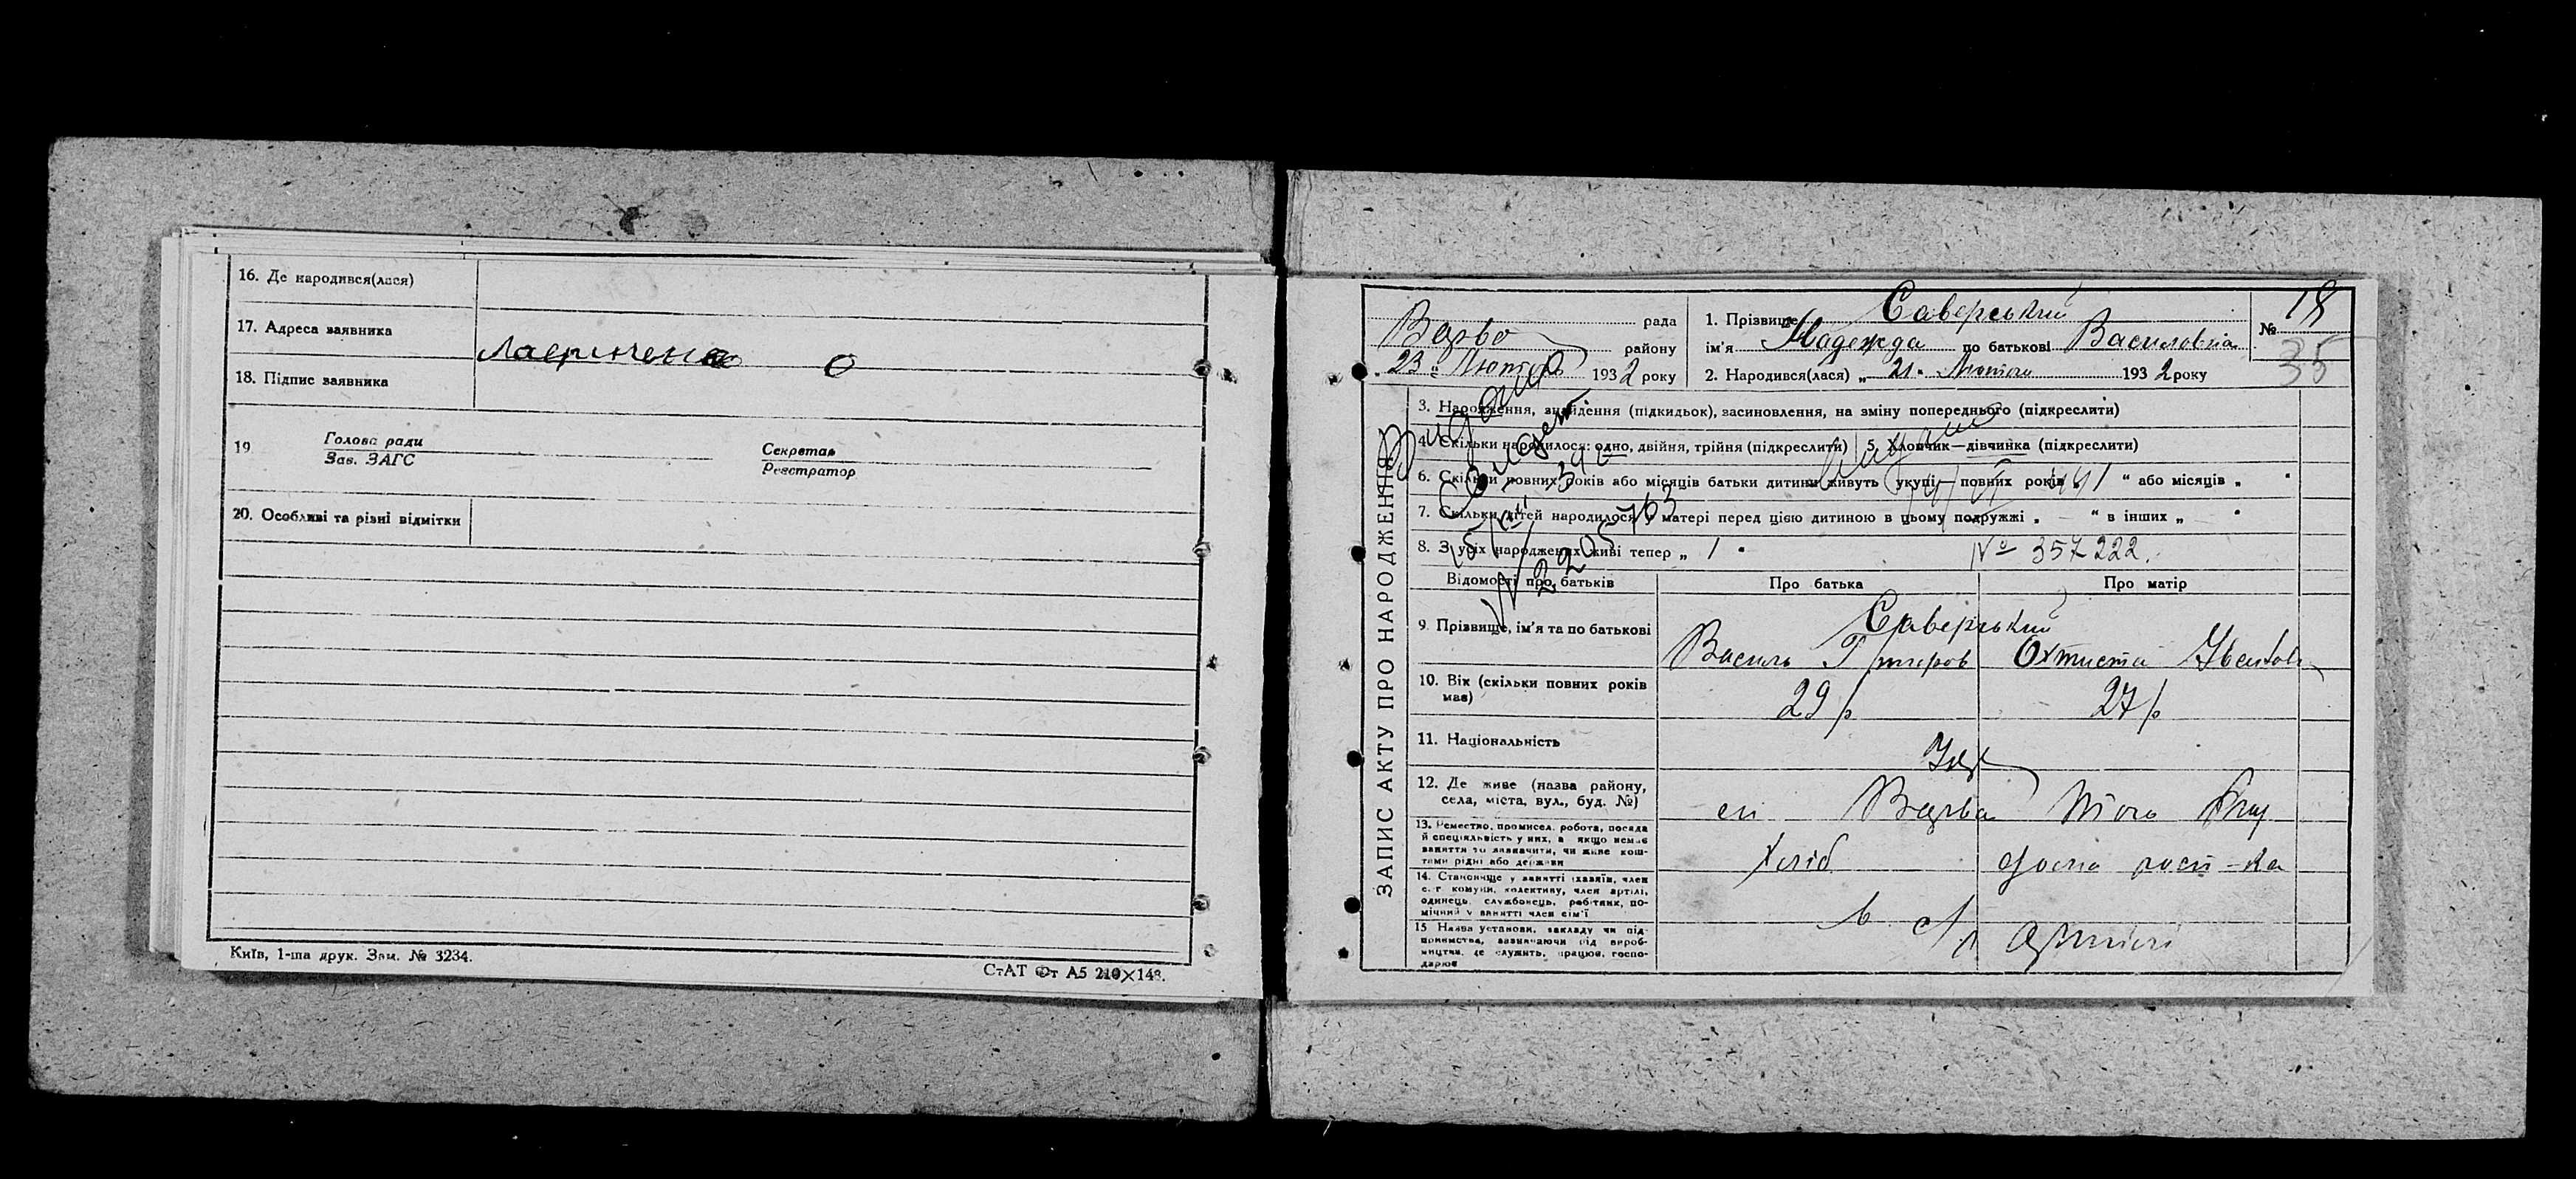 16. Де народився(лася)
17. Адреса заявника
18. Підпис заявника
19.
Голова ради
Зав. ЗАГС
Секретар
Реєстратор
20. Особливі та різні відмітки
Київ, 1-ша друк. Зам. № 3234.
СтАТ Фт А5 210×148.
ЗАПИС АКТУ ПРО НАРОДЖЕННЯ
рада
Варво району
„23“ Лютого 1932 року
1. Прізвище Саверський
ім'я Надежда по батькові Василовна
2. Народився(лася) „21" Лютого 1932 року
№ 18
35
3. Народження, знайдення (підкидьок), засиновлення, на зміну попереднього (підкреслити)
4. Скільки народилося: одно, двійня, трійня (підкреслити)
5. Хлопчик—дівчинка (підкреслити)
6. Скільки повних років або місяців батьки дитини живуть укупі— повних років „ “ або місяців „ "
7. Скільки дітей народилося у матері перед цією дитиною в цьому подружжі „ — “ в інших „ "
8. З усіх народжених живі тепер „ 1 "
№ 357222.
Видано
Свидет
№ 205763
Відомості про батьків
Про батька
Про матір
9. Прізвище, ім'я та по батькові
Саверський
Василь
Охтиста
10. Вік (скільки повних років має)
29 р
27 р
11. Національність
Укр
12. Де живе (назва району, села, міста, вул., буд. №)
Варва
13. Ремество, промисел, робота, посада й спеціяльність у них, а якщо немає заняття то зазначити, чи живе коштами рідні або держави
Хліб
14. Становище у занятті (хазяїн, член с.-г. комуни, колективу, член артілі, одинець, службовець, робітник, помічний у занятті член сім'ї
15. Назва установи, закладу чи підприємства, зазначаючи рід виробництва, де служить, працює, господарює
артілі